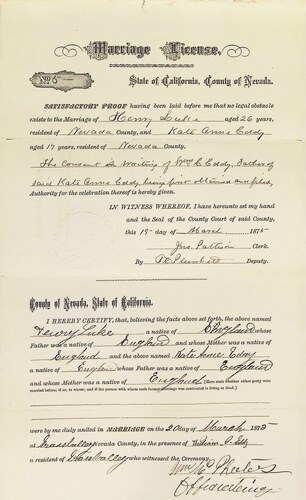 Marriage License.
No. 5
State of California, County of Nevada.
SATISFACTORY PROOF having been laid before me that no legal obstacle
exists to the Marriage of Henry Luke aged 26 years,
resident of Nevada County, and Kate Anne Eddy
aged 17 years, resident of Nevada County.
The consent in writing of Wm C Eddy, Father of
said Kate Anne Eddy being first obtained and filed,
Authority for the celebration thereof is hereby given.
IN WITNESS WHEREOF, I have hereunto set my hand
and the Seal of the County Court of said County,
this 1st day of March 1875
Jno. Pattison Clerk.
By Deputy.
County of Nevada, State of California.
I HEREBY CERTIFY, that, believing the facts above set forth, the above named
Henry Luke a native of England whose
Father was a native of England and whose Mother was a native of
England and the above named Kate Anne Eddy
a native of England whose Father was a native of England
and whose Mother was a native of England
were by me duly united in MARRIAGE on the 2 day of March 1875
in Grass Valley Nevada County, in the presence of William C. Eddy
a resident of Grass Valley who witnessed the Ceremony.
Officiating